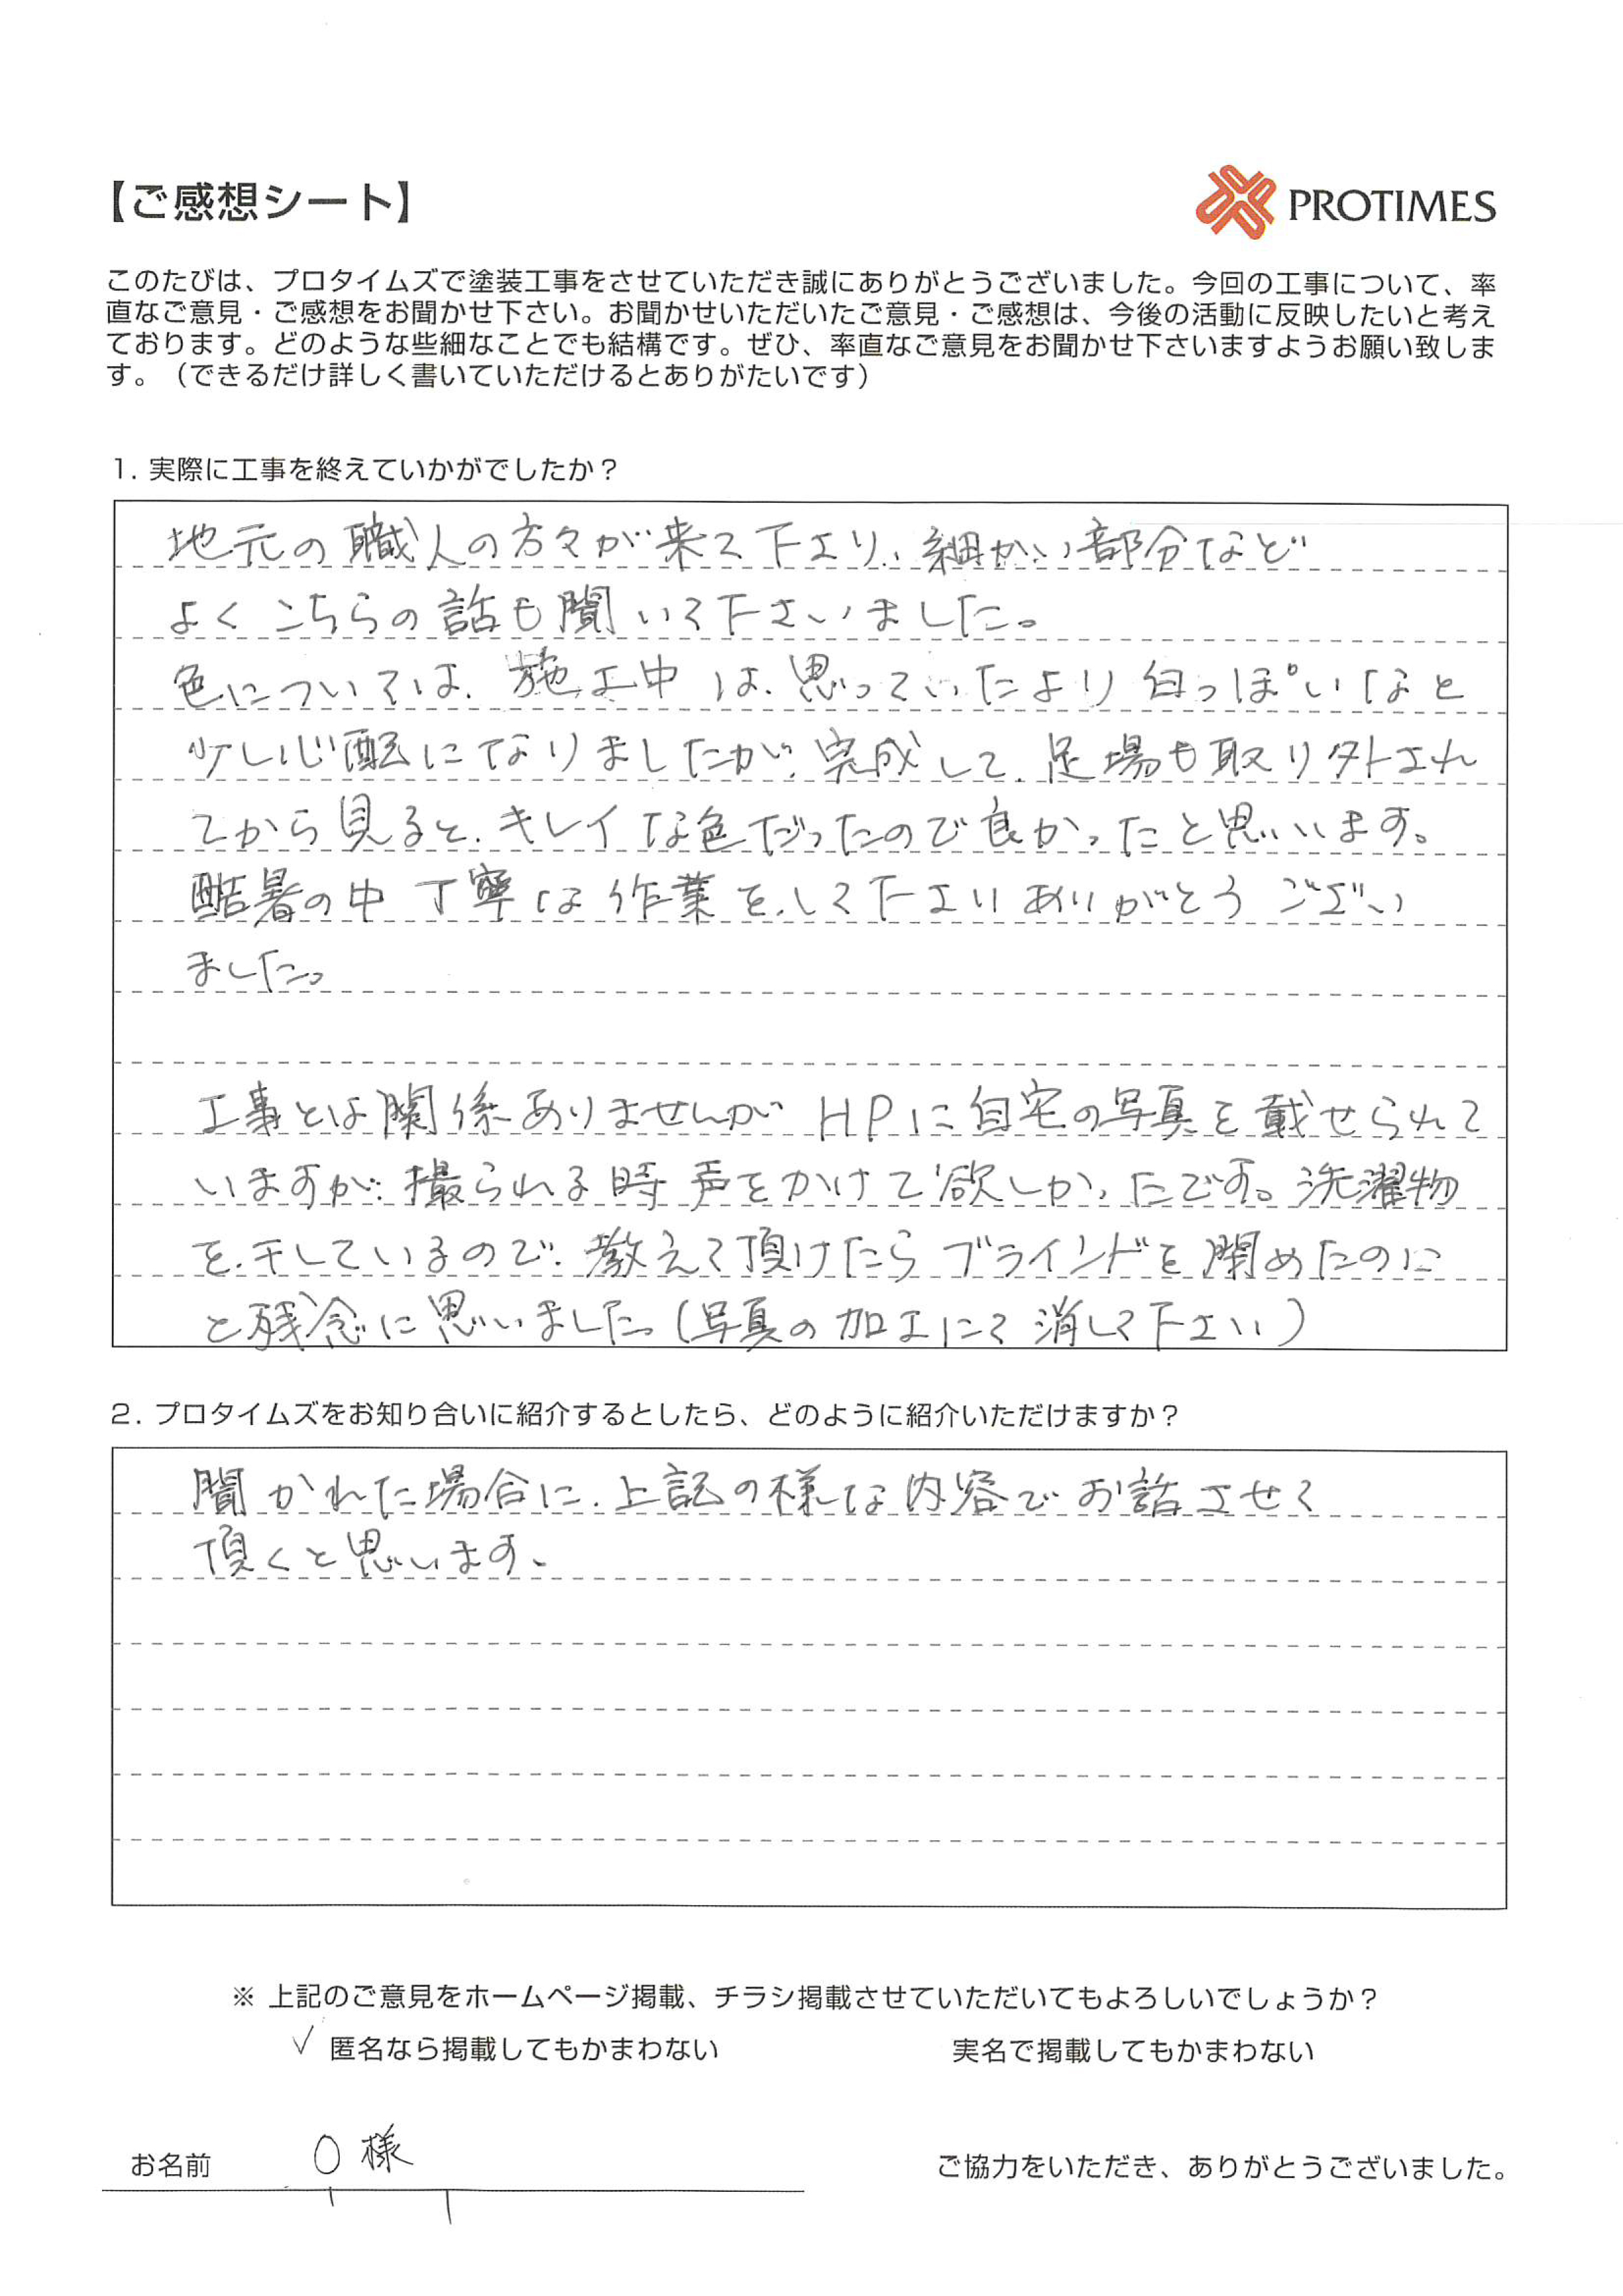 【ご感想シート】
PROTIMES
このたびは、プロタイムズで塗装工事をさせていただき誠にありがとうございました。今回の工事について、率
直なご意見・ご感想をお聞かせ下さい。お聞かせいただいたご意見・ご感想は、今後の活動に反映したいと考え
ております。どのような些細なことでも結構です。ぜひ、率直なご意見をお聞かせ下さいますようお願い致しま
す。（できるだけ詳しく書いていただけるとありがたいです）
1. 実際に工事を終えていかがでしたか？
地元の職人の方々が来て下さり、細かい部分など
よくこちらの話も聞いて下さいました。
色については、施工中は、思っていたより白っぽいなと
少し心配になりましたが、完成して、足場も取り外され
てから見ると、キレイな色だったので良かったと思います。
酷暑の中丁寧な作業をして下さりありがとうござい
ました。
工事とは関係ありませんがHPに自宅の写真を載せられて
いますが、撮られる時声をかけて欲しかったです。洗濯物
を干しているので、教えて頂けたらブラインドを閉めたのに
と残念に思いました。(写真の加工にて消して下さい)
2. プロタイムズをお知り合いに紹介するとしたら、どのように紹介いただけますか？
聞かれた場合に、上記の様な内容でお話させて
頂くと思います。
※ 上記のご意見をホームページ掲載、チラシ掲載させていただいてもよろしいでしょうか？
✓ 匿名なら掲載してもかまわない 実名で掲載してもかまわない
お名前 O 様 ご協力をいただき、ありがとうございました。